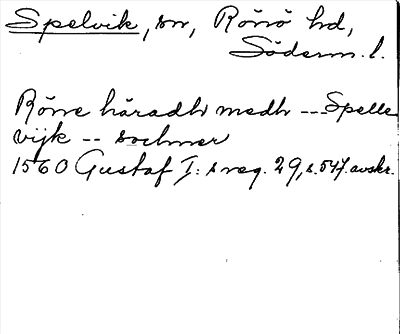 Spelvik, sn, Rönö hd,
Söderm. l.
Röne häradh medh --- Spelle
vijk -- sochner
1560 Gustaf I:s reg. 29, s. 547. avskr.